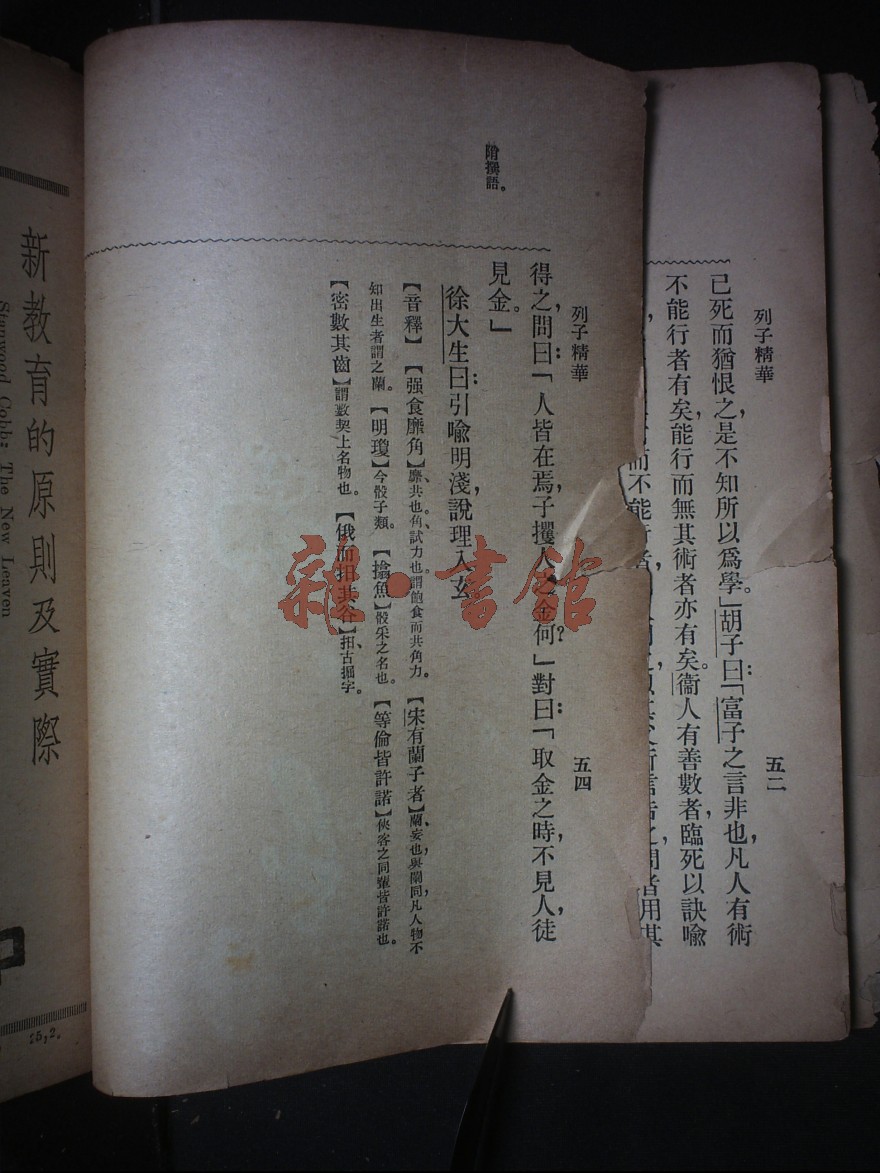 列子精華
五二
己死而猶恨之，是不知所以爲學。」胡子曰：「富子之言非也，凡人有術
不能行者有矣，能行而無其術者亦有矣。衞人有善數者，臨死以訣喩
而不能
問者用其
列子精華
五四
得之，問曰：「人皆在焉，子攫人之金何？」對曰：「取金之時，不見人，徒
見金。」
徐大生曰：引喩明淺，說理入玄
【音釋】【强食靡角】靡、共也。角、試力也。謂飽食而共角力。【宋有蘭子者】蘭、妄也，與闌同，凡人物不
知出生者謂之蘭。【明瓊】今骰子類。【㩉魚】骰采之名也。【等倫皆許諾】俠客之同輩皆許諾也。
【密數其齒】謂數契上名物也。【俄而抇其谷】抇、古掘字。
階撰語。
新教育的原則及實際
Stanwood Cobb: The New Leaven
雜·書館